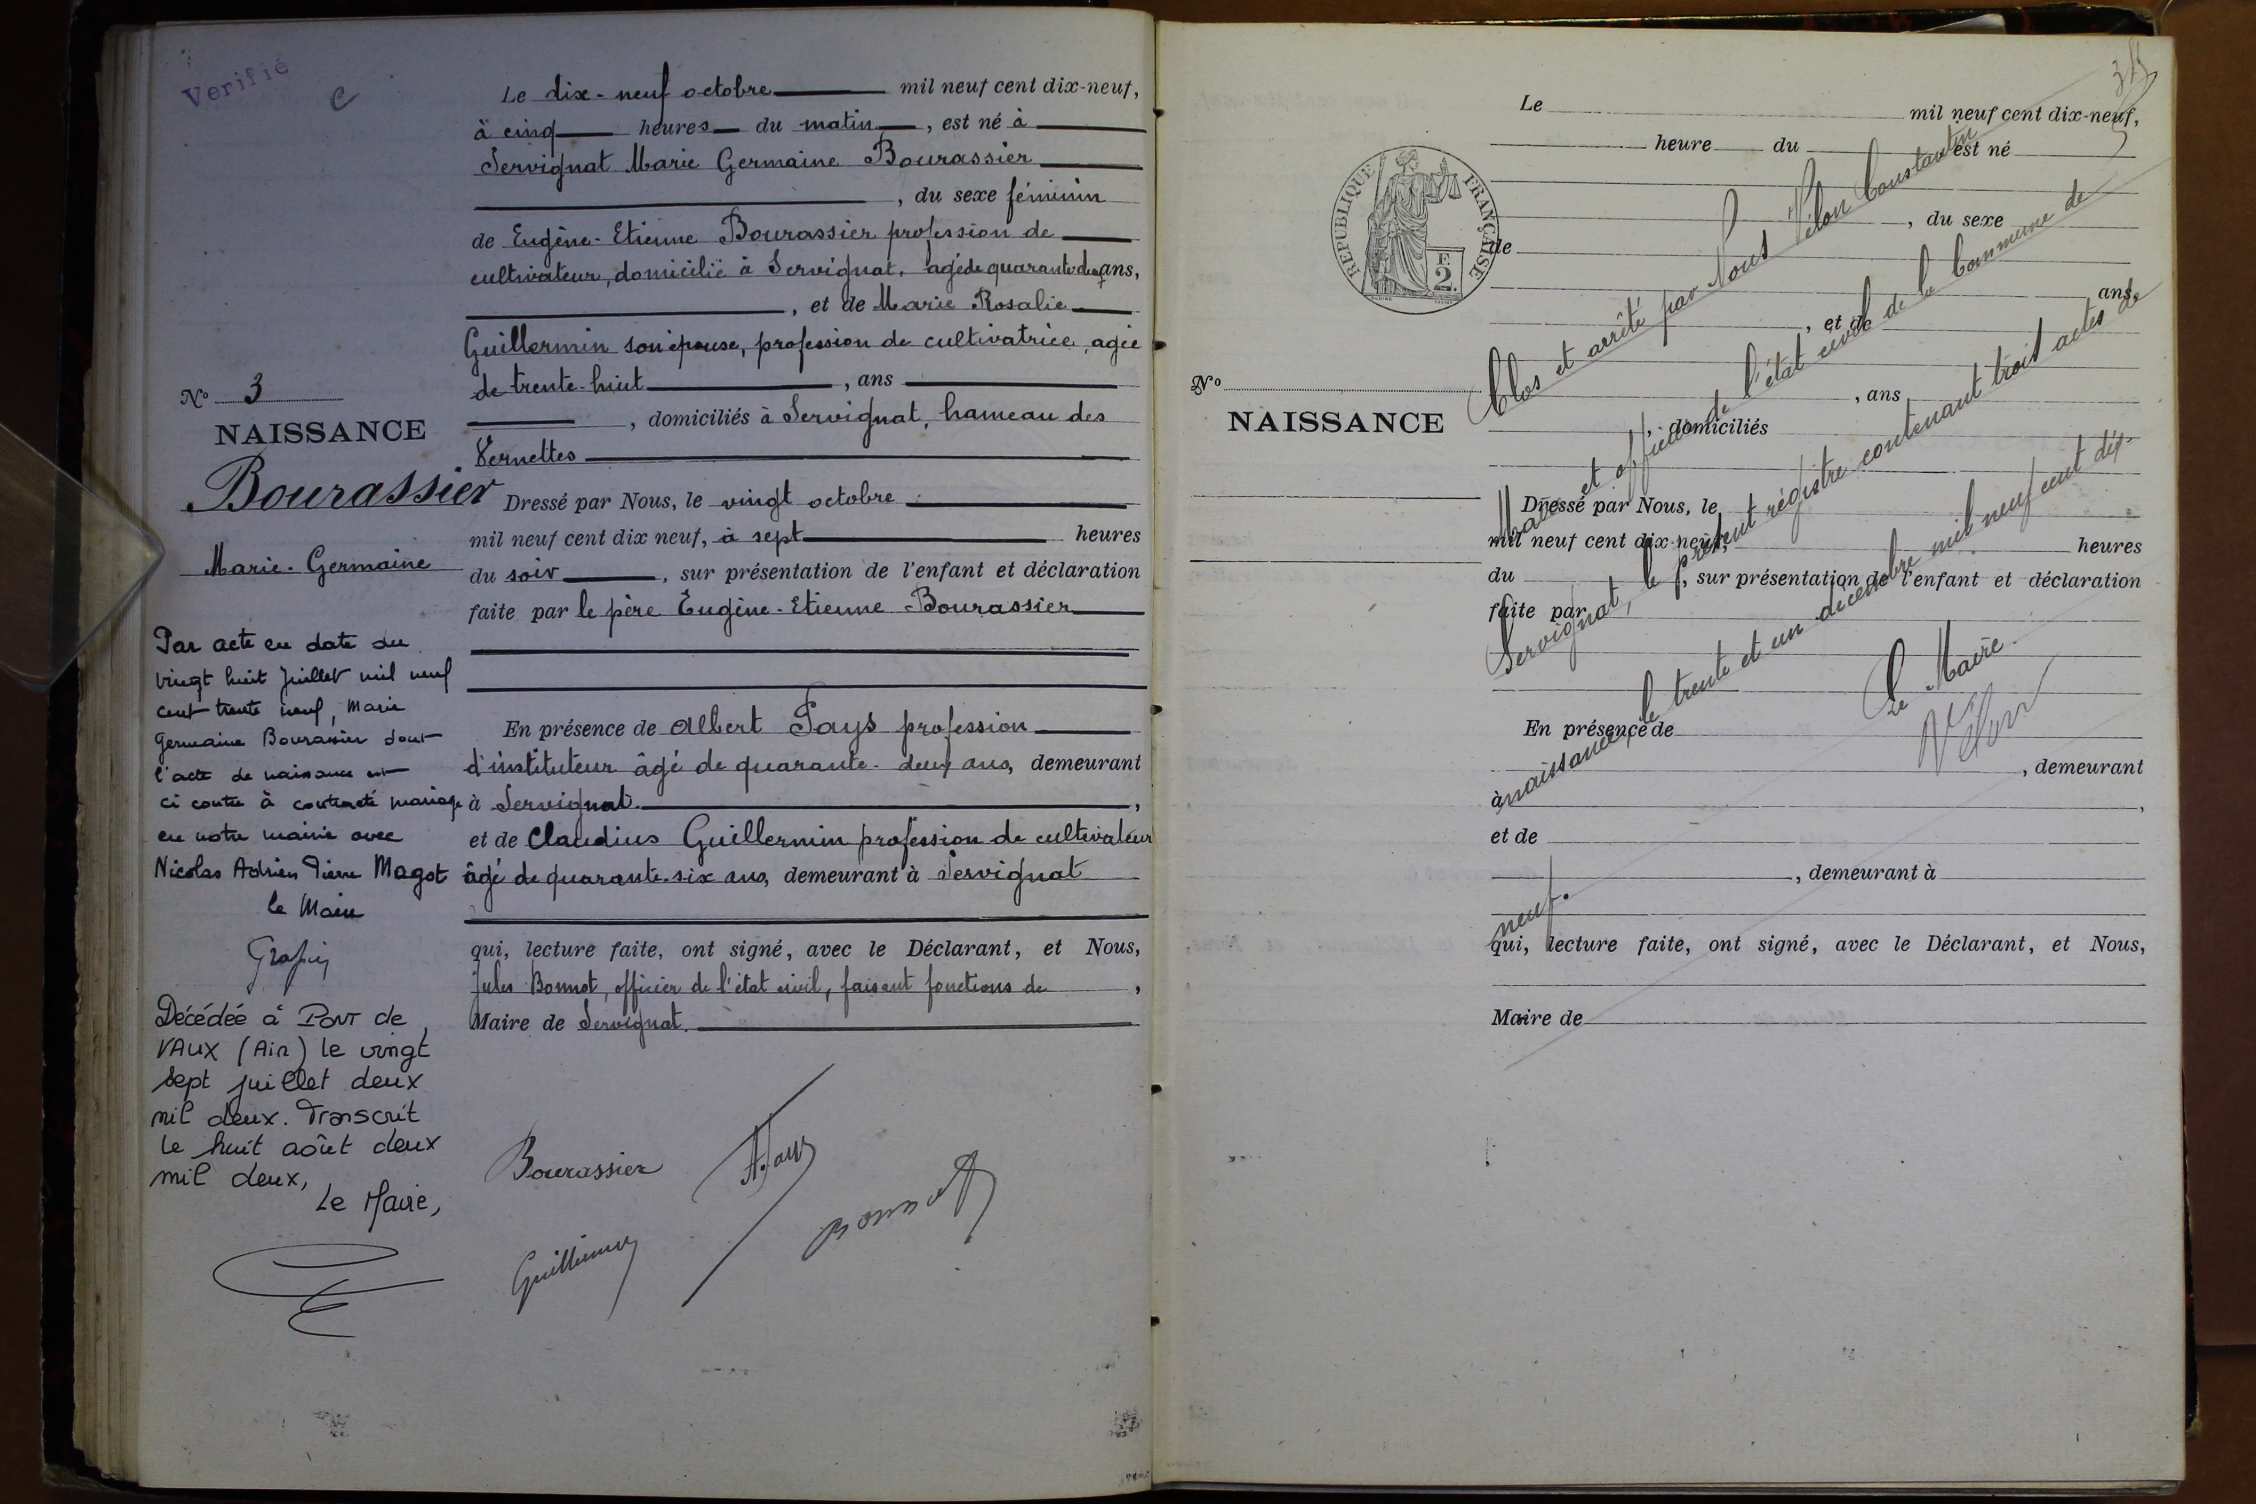 Verifié
C
Le dix-neuf octobre mil neuf cent dix-neuf,
à cinq heures du matin, est né à
Servignat Marie Germaine Bourassier
, du sexe féminin
de Eugène-Etienne Bourassier profession de
cultivateur, domicilié à Servignat, agé de quarante deux ans,
, et de Marie Rosalie
Guillermin son épouse, profession de cultivatrice, agée
de trente-huit, ans
, domiciliés à Servignat, hameau des
Vernettes
Dressé par Nous, le vingt octobre
mil neuf cent dix neuf, à sept heures
du soir, sur présentation de l'enfant et déclaration
faite par le père Eugène-Etienne Bourassier
En présence de Albert Pays profession
d'instituteur âgé de quarante-deux ans, demeurant
à Servignat,
et de Claudius Guillermin profession de cultivateur
âgé de quarante-six ans, demeurant à Servignat
qui, lecture faite, ont signé, avec le Déclarant, et Nous,
Jules Bonnot, officier de l'état civil, faisant fonctions de,
Maire de Servignat.
Bourassier
Guillermin
Bonnot
No 3
NAISSANCE
Bourassier
Marie-Germaine
Par acte en date du
vingt huit Juillet mil neuf
cent trente neuf, Marie
Germaine Bourassier dont
l'acte de naissance est
ci contre à contracté mariage
en notre mairie avec
Nicolas Adrien Pierre Magot
le Maire
Décédée à PONT de
VAUX (Ain) le vingt
sept juillet deux
mil deux. Transcrit
le huit août deux
mil deux,
Le Maire,
Le mil neuf cent dix-neuf,
heure du est né
, du sexe
de
ans,
, et de
, ans
, domiciliés
No
NAISSANCE
RÉPUBLIQUE FRANÇAISE
F.
2.
Dressé par Nous, le
mil neuf cent dix-neuf,
heures
du, sur présentation de l'enfant et déclaration
faite par
En présence de
, demeurant
à,
et de
, demeurant à
qui, lecture faite, ont signé, avec le Déclarant, et Nous,
Maire de
Clos et arrêté par Nous Vélon Constantin
Maire et officier de l'état civil de la Commune de
Servignat, le présent régistre contenant trois actes de
naissance, le trente et un décembre mil neuf cent dix-
neuf.
Le Maire
Vélon